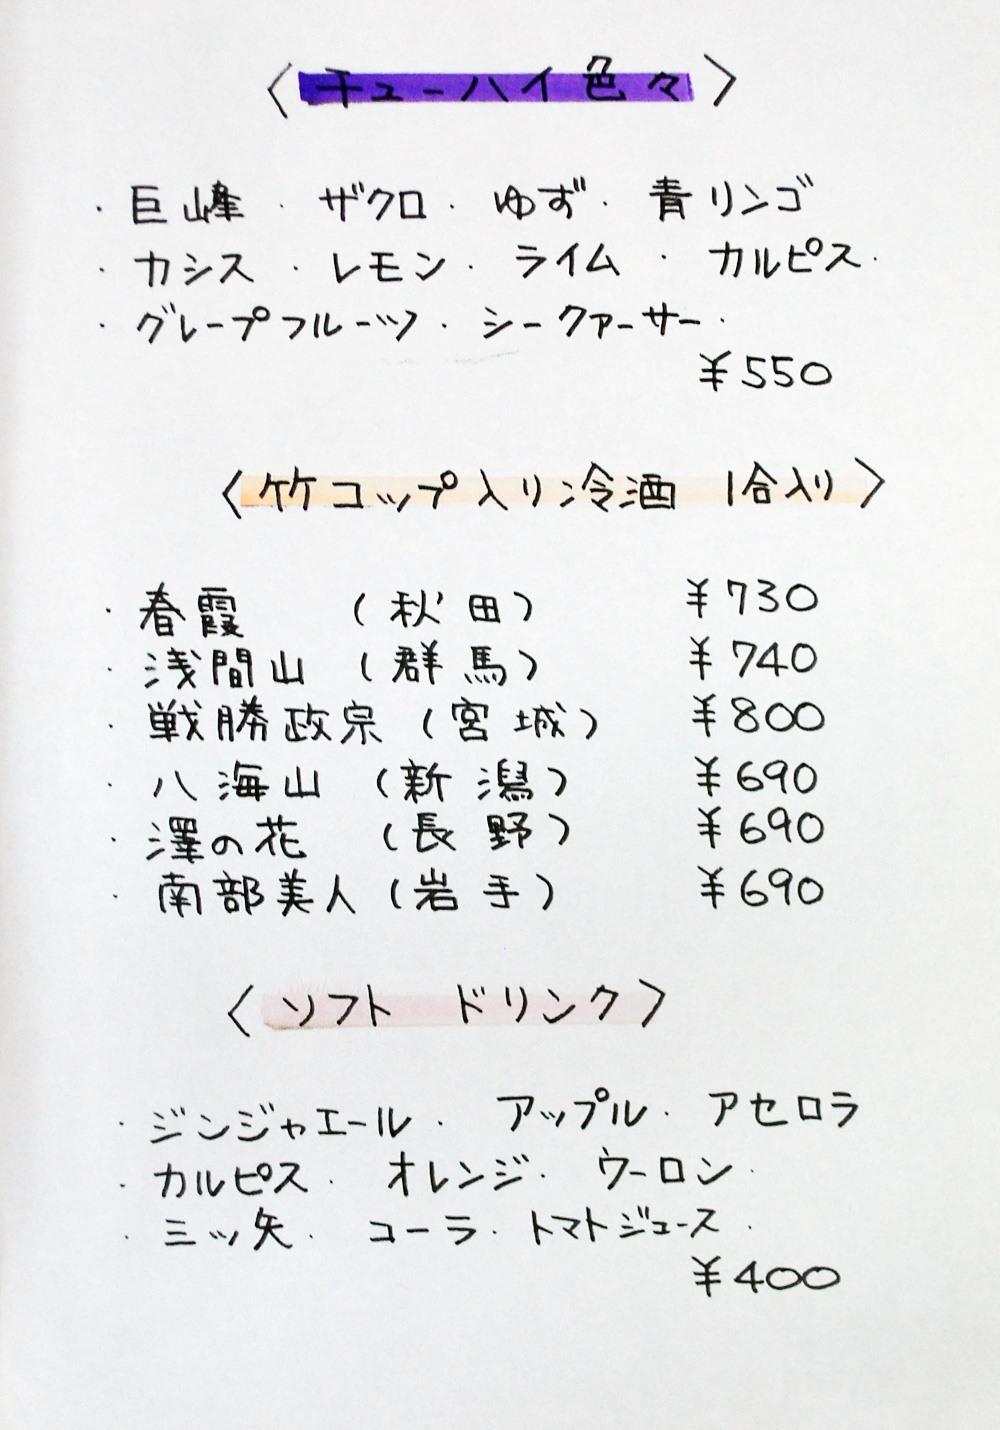 〈チューハイ色々〉
・巨峰・ザクロ・ゆず・青リンゴ
・カシス・レモン・ライム・カルピス・
・グレープフルーツ・シークァーサー・
¥550
〈竹コップ入り冷酒 1合入り〉
・春霞 (秋田) ¥730
・浅間山 (群馬) ¥740
・戦勝政宗 (宮城) ¥800
・八海山 (新潟) ¥690
・澤の花 (長野) ¥690
・南部美人 (岩手) ¥690
〈ソフト ドリンク〉
・ジンジャエール・アップル・アセロラ
・カルピス・オレンジ・ウーロン・
・三ッ矢・コーラ・トマトジュース・
¥400